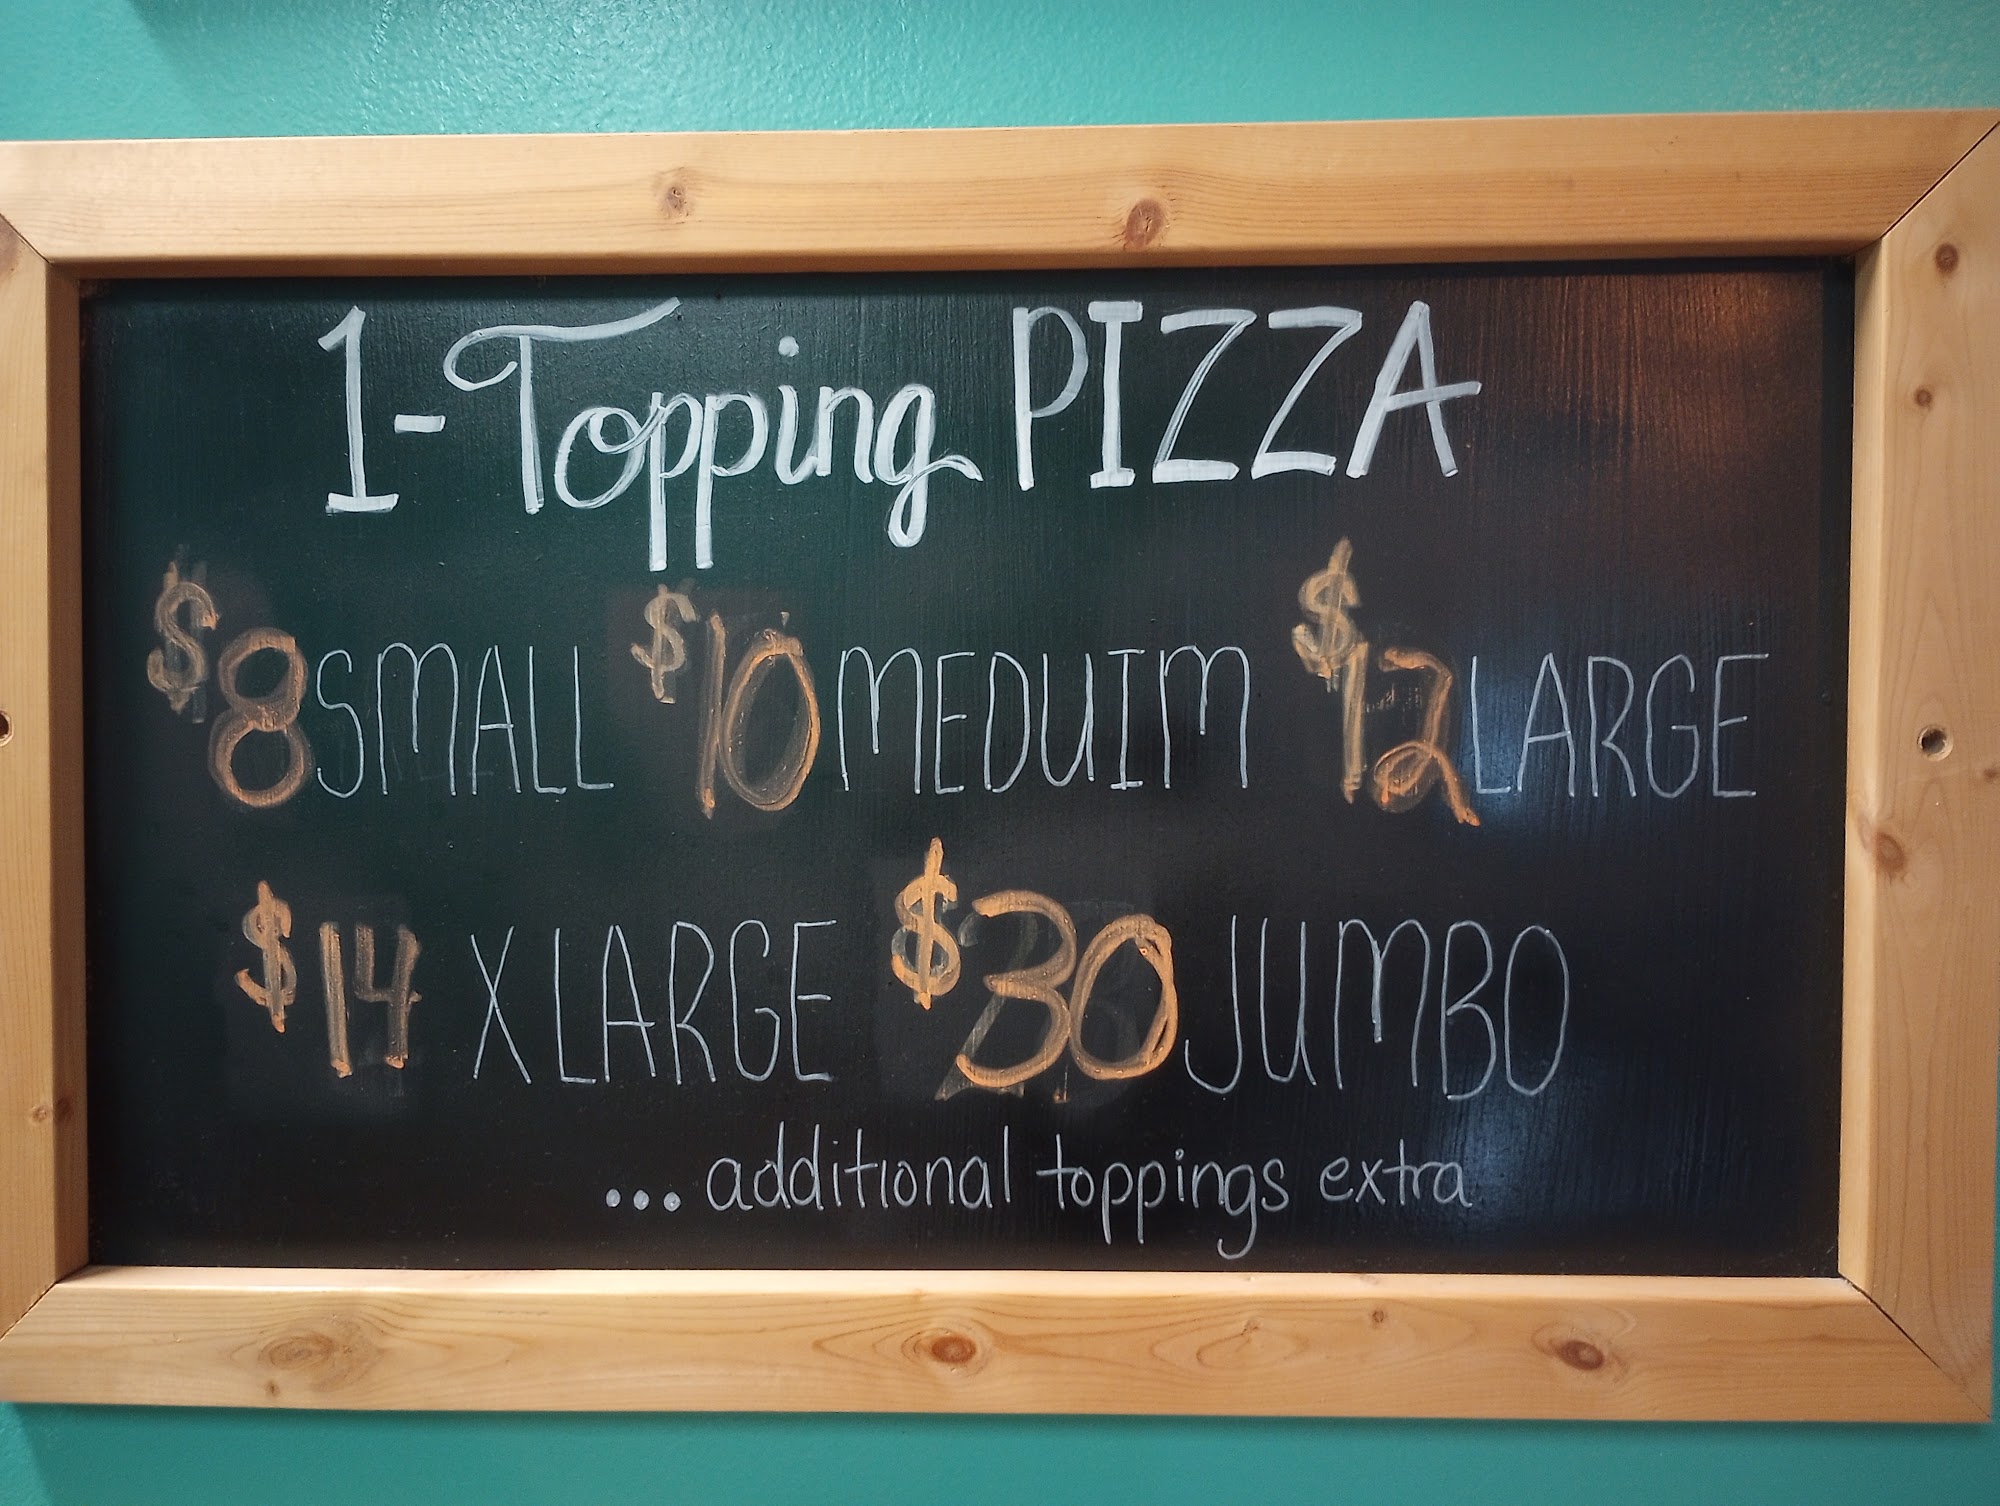 1-Topping PIZZA
$8 SMALL $10 MEDUIM $12 LARGE
$14 X LARGE $30 JUMBO
...additional toppings extra